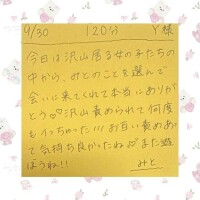 9/30 120分 Y様
今日は沢山居る女の子たちの
中から、みとのことを選んで
会いに来てくれて本当にありが
とう♡沢山責められて何度
もイっちゃった!!!お互い責めあっ
て気持ち良かったね♡また遊
ぼうね!!
みと